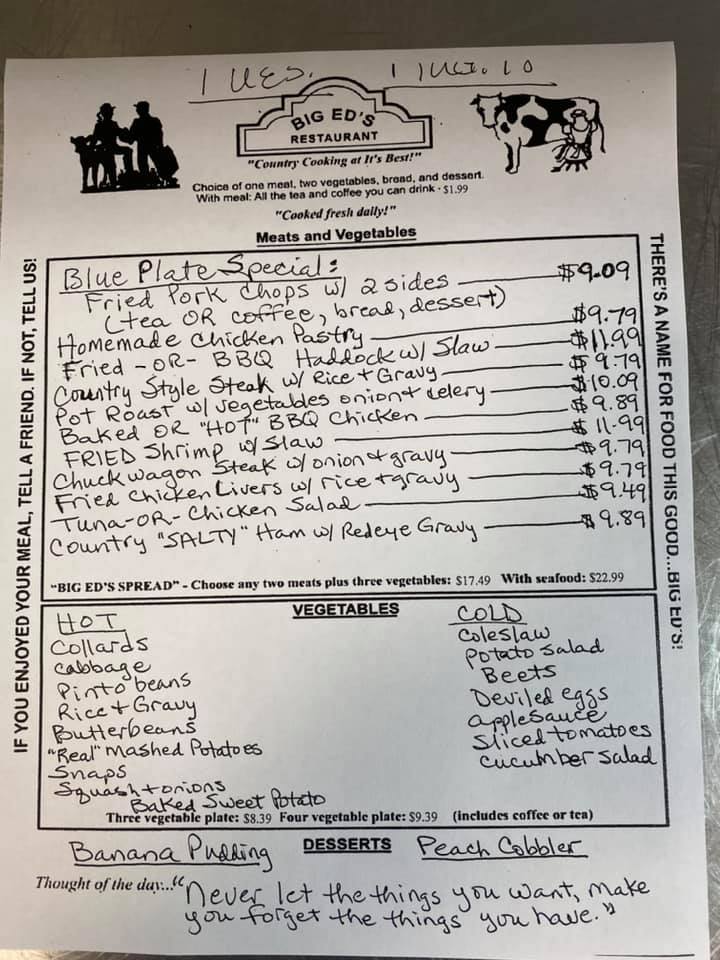 Tues.
BIG ED'S
RESTAURANT
"Country Cooking at It's Best!"
Choice of one meat, two vegetables, bread, and dessert.
With meal: All the tea and coffee you can drink - $1.99
"Cooked fresh daily!"
Meats and Vegetables
IF YOU ENJOYED YOUR MEAL, TELL A FRIEND. IF NOT, TELL US!
THERE'S A NAME FOR FOOD THIS GOOD...BIG ED'S!
Blue Plate Special:
Fried Pork Chops w/ 2 sides $9.09
(tea OR coffee, bread, dessert)
Homemade Chicken Pastry $9.79
Fried -OR- BBQ Haddock w/ Slaw $11.99
Country Style Steak w/ Rice + Gravy $9.79
Pot Roast w/ vegetables onion + celery $10.09
Baked OR "HOT" BBQ Chicken $9.89
FRIED Shrimp w/ Slaw $11.99
Chuckwagon Steak w/ onion + gravy $9.79
Fried Chicken Livers w/ rice + gravy $9.79
Tuna-OR-Chicken Salad $9.49
Country "SALTY" Ham w/ Redeye Gravy $9.89
"BIG ED'S SPREAD" - Choose any two meats plus three vegetables: $17.49 With seafood: $22.99
VEGETABLES
HOT
Collards
Cabbage
Pinto beans
Rice + Gravy
Butterbeans
"Real" Mashed Potatoes
Snaps
Squash + onions
Baked Sweet Potato
COLD
Coleslaw
Potato Salad
Beets
Deviled eggs
applesauce
Sliced tomatoes
cucumber salad
Three vegetable plate: $8.39 Four vegetable plate: $9.39 (includes coffee or tea)
Banana Pudding DESSERTS Peach Cobbler
Thought of the day..."Never let the things you want, make
you forget the things you have."